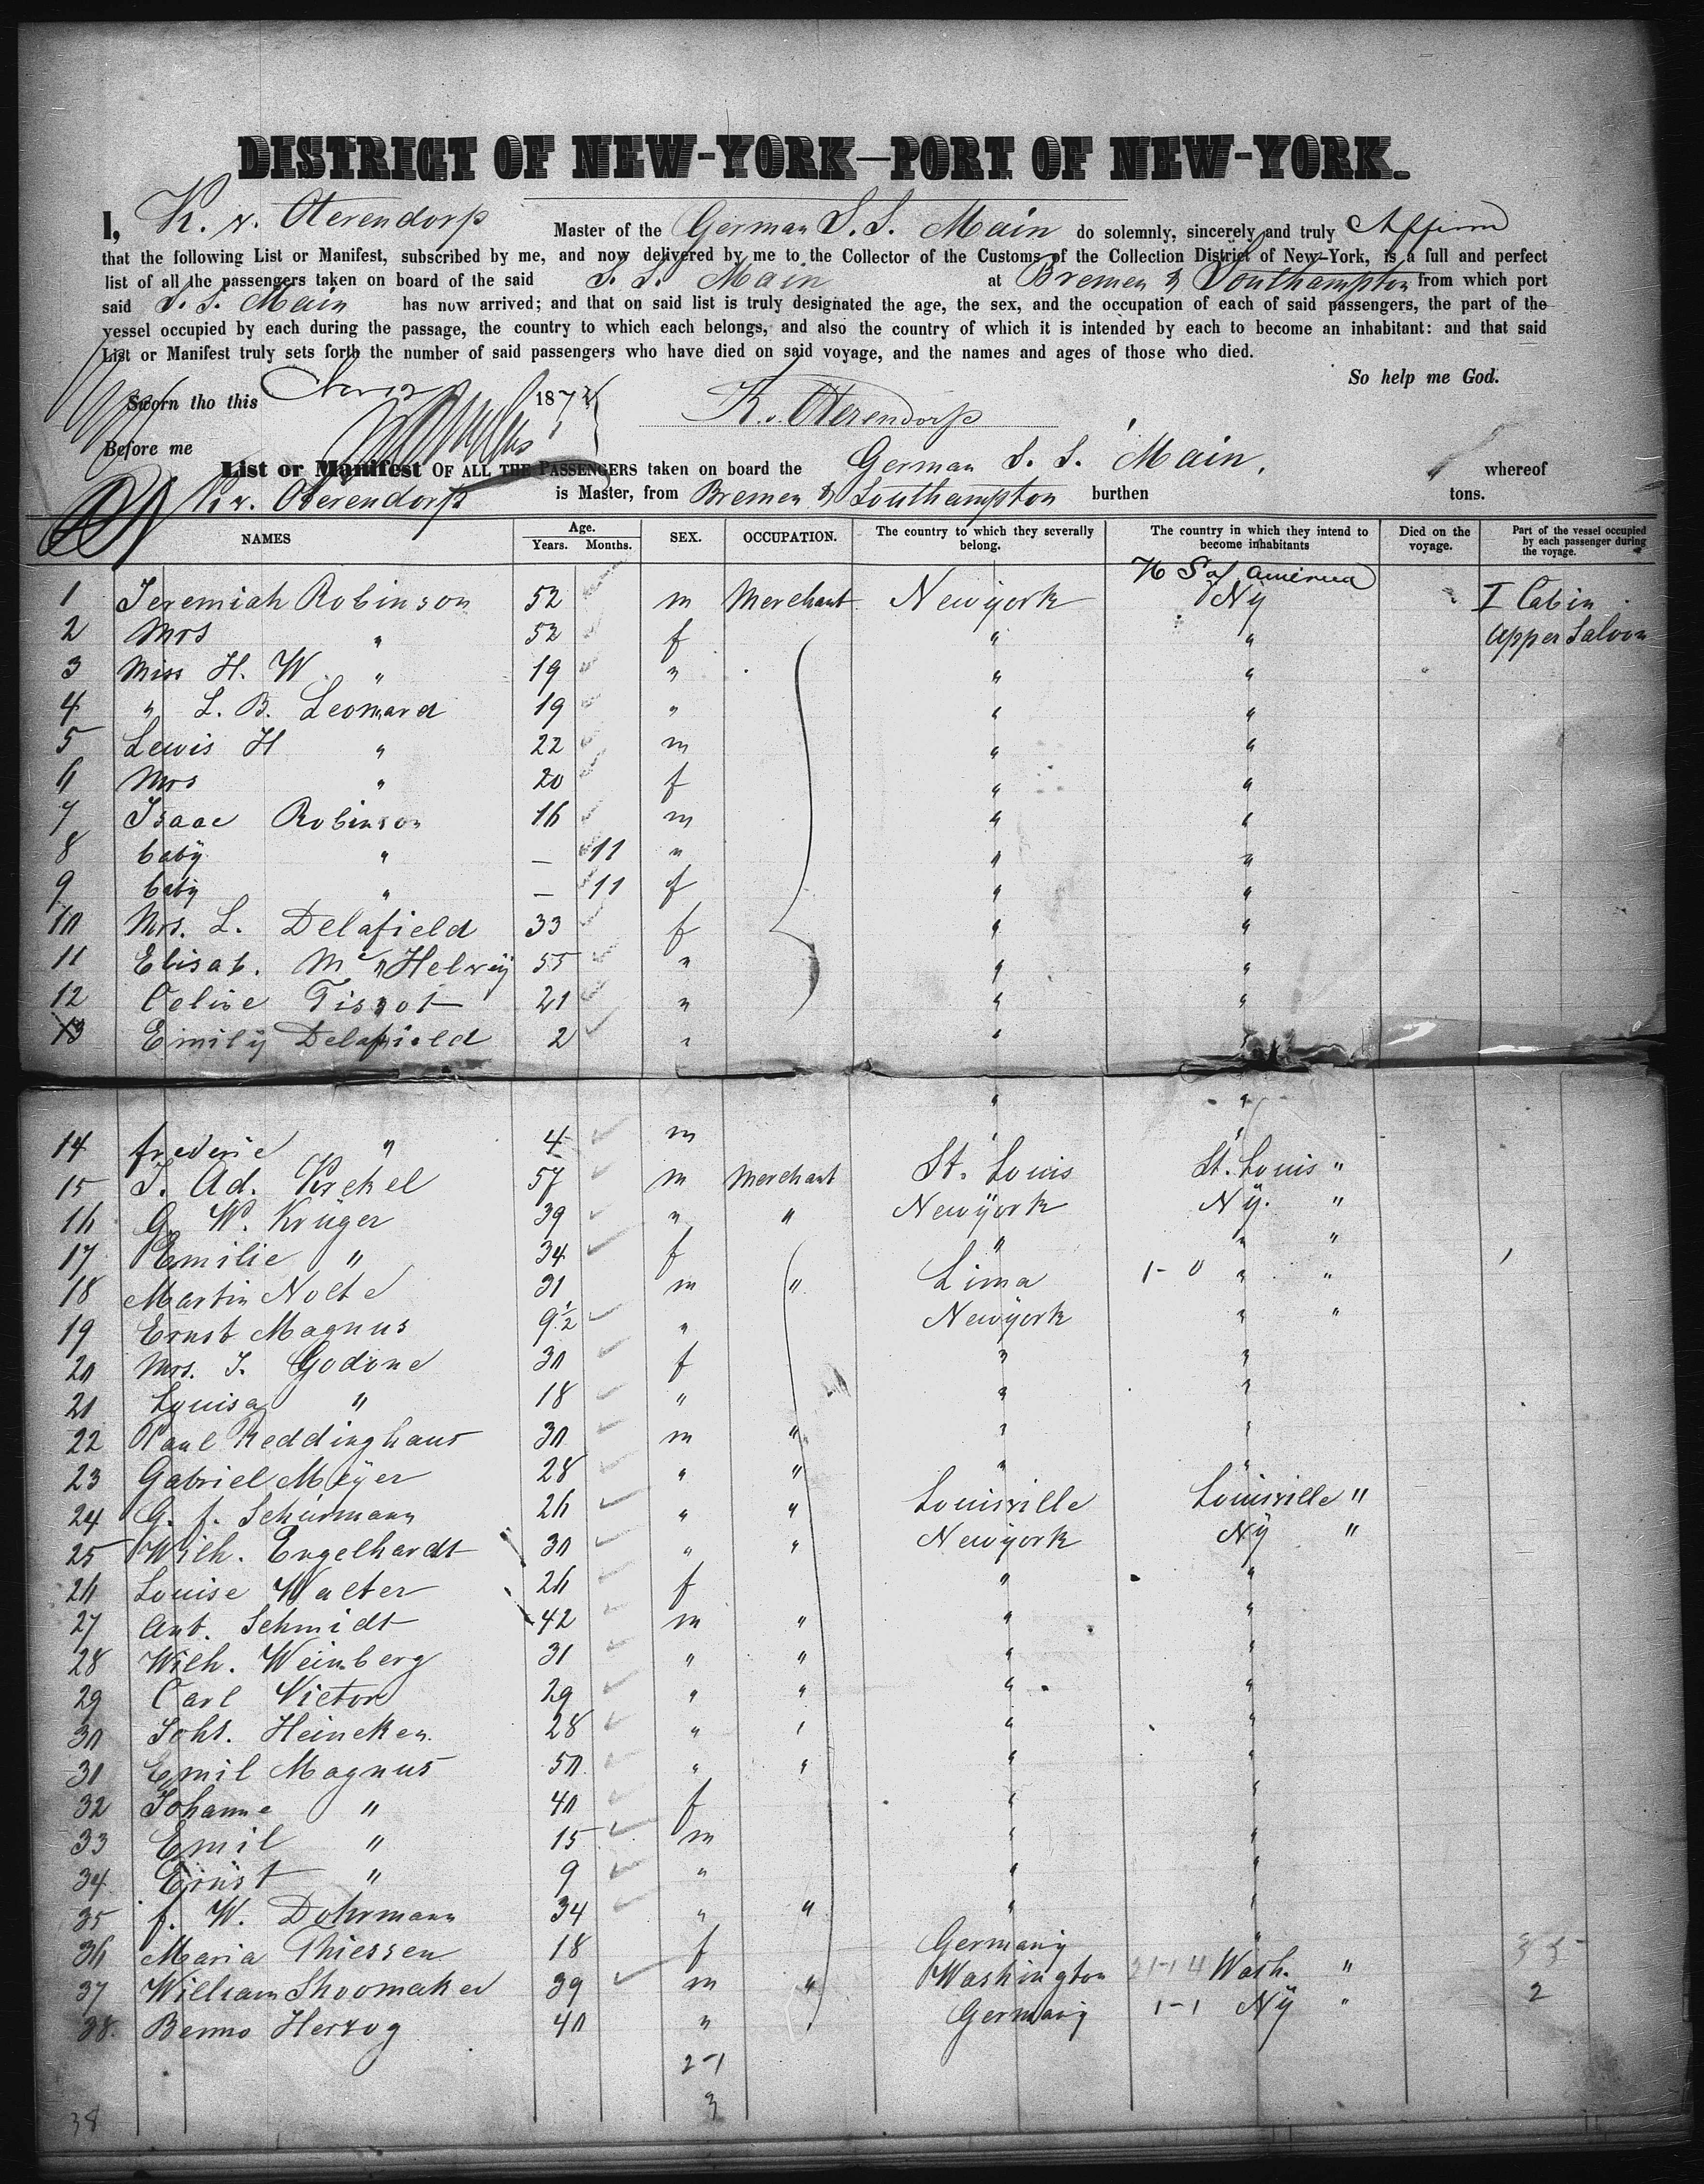 DISTRICT OF NEW-YORK—PORT OF NEW-YORK.
I, K. v. Oterendorp Master of the German S. S. Main do solemnly, sincerely and truly Affirm
that the following List or Manifest, subscribed by me, and now delivered by me to the Collector of the Customs of the Collection District of New-York, is a full and perfect
list of all the passengers taken on board of the said S. S. Main at Bremen & Southampton from which port
said S. S. Main has now arrived; and that on said list is truly designated the age, the sex, and the occupation of each of said passengers, the part of the
vessel occupied by each during the passage, the country to which each belongs, and also the country of which it is intended by each to become an inhabitant: and that said
List or Manifest truly sets forth the number of said passengers who have died on said voyage, and the names and ages of those who died.
So help me God.
Sworn tho this Nov 12 1872
K. v. Oterendorp
Before me
List or Manifest OF ALL THE PASSENGERS taken on board the German S. S. Main, whereof
K. v. Oterendorp is Master, from Bremen & Southampton burthen tons.
NAMES Age. Years. Months. SEX. OCCUPATION. The country to which they severally belong. The country in which they intend to become inhabitants Died on the voyage. Part of the vessel occupied by each passenger during the voyage.
U S of America
1 Jeremiah Robinson 52 m Merchant Newyork Ny I Cabin
2 Mrs " 52 f " " Upper Saloon
3 Miss H. W. " 19 " " "
4 " L. B. Leonard 19 " " "
5 Lewis H " 22 m " "
6 Mrs " 20 f " "
7 Isaac Robinson 16 m " "
8 baby " — 11 " " "
9 baby " — 11 f " "
10 Mrs. L. Delafield 33 f " "
11 Elisab. Mc Helvy 55 " " "
12 Celine Tissot 21 " " "
13 Emily Delafield 2 " " "
14 frederic " 4 m " "
15 J. Ad. Krekel 57 m Merchant St. Louis St. Louis "
16 G. W. Krüger 39 " " Newyork Ny. "
17 Emilie " 34 f " " "
18 Martin Nolte 31 m " Lima 1-0 " "
19 Ernst Magnus 9½ " Newyork " "
20 Mrs. J. Godone 30 f " "
21 Louisa " 18 " " "
22 Paul Reddinghaus 30 m " " "
23 Gabriel Meyer 28 " " " "
24 G. f. Schürmann 26 " " Louisville Louisville "
25 Wilh. Engelhardt 30 " " Newyork Ny "
26 Louise Walter 26 f " "
27 Ant. Schmidt 42 m " " "
28 Wilh. Weinberg 31 " " " "
29 Carl Victor 29 " " " "
30 Johs. Heineken. 28 " " " "
31 Emil Magnus 50 " " " "
32 Johanne " 40 f " "
33 Emil " 15 m " "
34 Ernst " 9 " " "
35 f. W. Dohrmann 34 " " " "
36 Maria Thiessen 18 f Germany "
37 William Shoomaker 39 m " Washington 21-14 Wash. " 35
38. Benno Herzog 40 " " Germany 1-1 Ny " 2
2-1
3
38